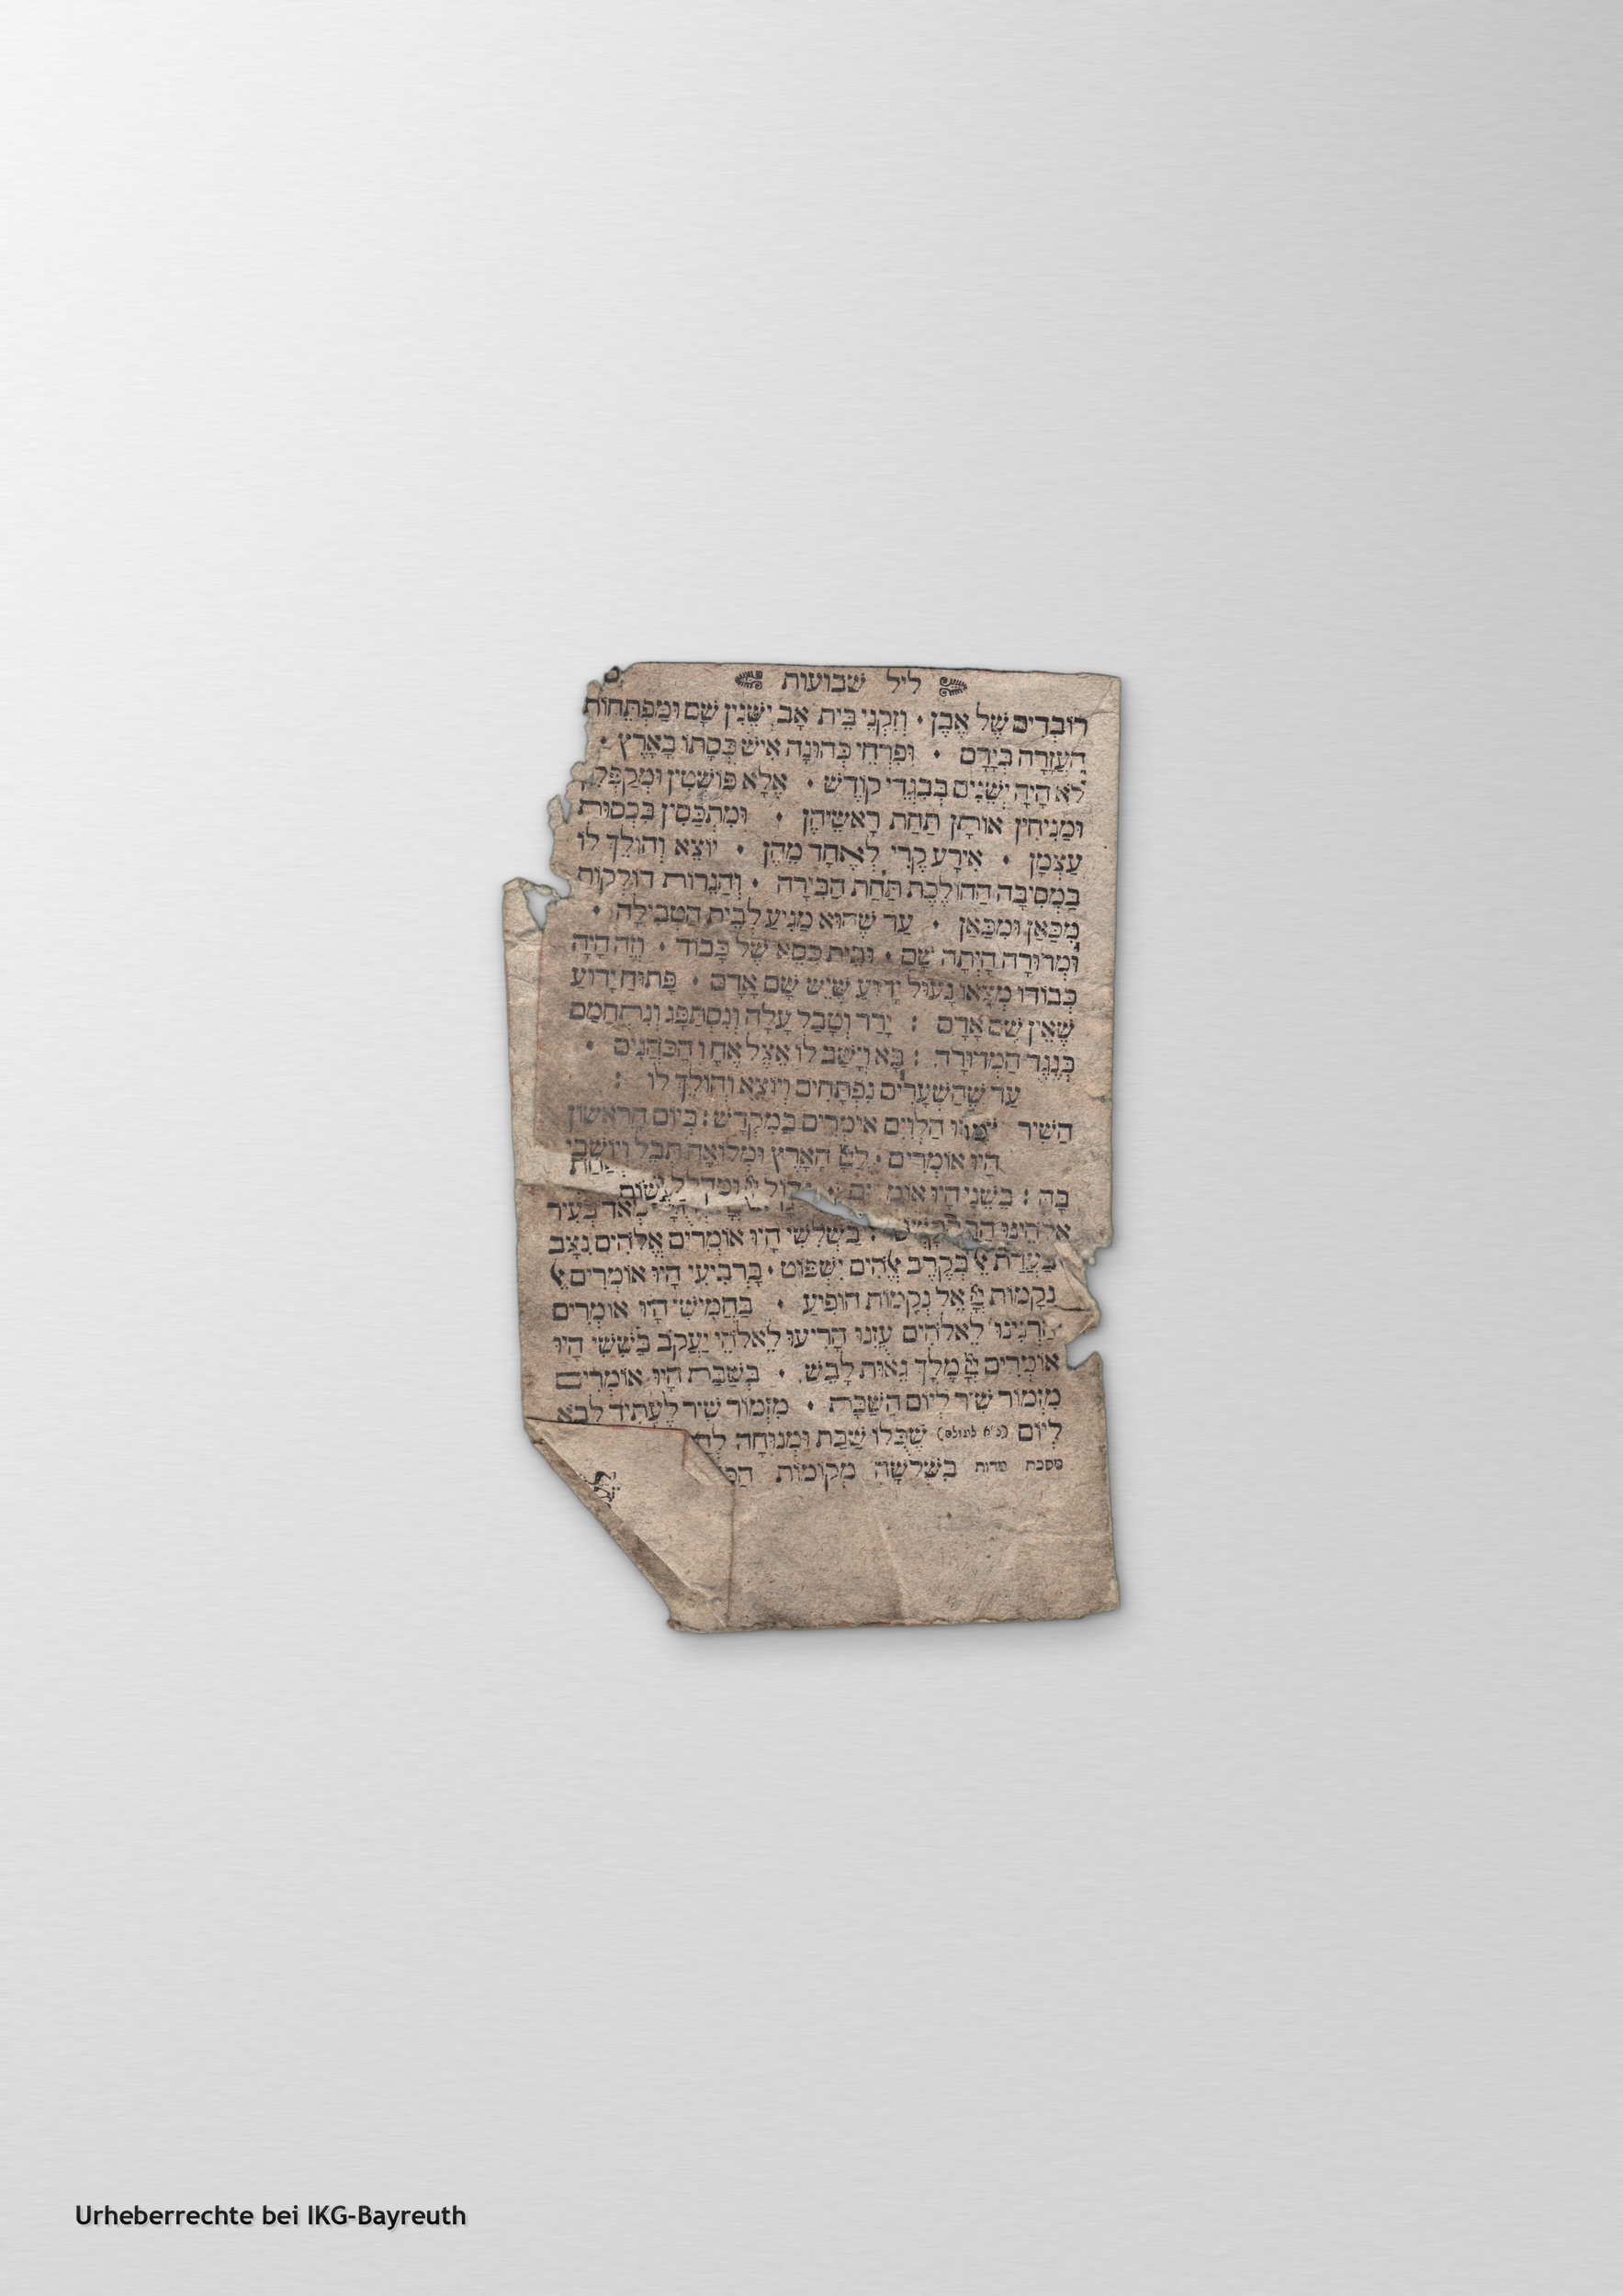 ליל שבועות
רוֹבְדִים שֶׁל אֶבֶן • וְזִקְנֵי בֵּית אָב יְשֵׁנִין שָׁם וּמַפְתְּחוֹת
הָעֲזָרָה בְּיָדָם • וּפִרְחֵי כְּהוּנָה אִישׁ כְּסָתוֹ בָּאָרֶץ •
לֹא הָיָה יְשֵׁנִים בְּבִגְדֵי קוֹדֶשׁ • אֶלָּא פּוֹשְׁטִין וּמְקַפְּלִין
וּמַנִּיחִין אוֹתָן תַּחַת רָאשֵׁיהֶן • וּמִתְכַּסִּין בִּכְסוּת
עַצְמָן • אִירַע קֶרִי לְאֶחָד מֵהֶן • יוֹצֵא וְהוֹלֵךְ לוֹ
בַּמְסִיבָּה הַהוֹלֶכֶת תַּחַת הַבִּירָה • וְהַנֵּרוֹת דּוֹלְקוֹת
מִכַּאן וּמִכַּאן • עַד שֶׁהוּא מַגִּיעַ לְבֵית הַטְּבִילָה •
וּמְדוּרָה הָיְתָה שָׁם • וּבֵית כִּסֵא שֶׁל כָּבוֹד • וְזֶה הָיָה
כְּבוֹדוֹ מְצָאוֹ נָעוּל יָדוּעַ שֶׁיֵּשׁ שָׁם אָדָם • פָּתוּחַ יָדוּעַ
שֶׁאֵין שָׁם אָדָם : יָרַד וְטָבַל עָלָה וְנִסְתַּפֵּג וְנִתְחַמֵּם
כְּנֶגֶד הַמְּדוּרָה : בָּא וְיָשַׁב לוֹ אֵצֶל אֶחָיו הַכֹּהֲנִים •
עַד שֶׁהַשְּׁעָרִים נִפְתָּחִים וְיוֹצֵא וְהוֹלֵךְ לוֹ :
הַשִּׁיר הַלְוִיִּם אוֹמְרִים בַּמִּקְדָּשׁ : בַּיּוֹם הָרִאשׁוֹן
הָיוּ אוֹמְרִים • הָאָרֶץ וּמְלוֹאָהּ תֵּבֵל וְיוֹשְׁבֵי
בָהּ : בַּשֵּׁנִי הָיוּ
מְאֹד בְּעִיר
אֱלֹהֵינוּ : בַּשְּׁלִישִׁי הָיוּ אוֹמְרִים אֱלֹהִים נִצָּב
בַּעֲדַת בְּקֶרֶב אֱלֹהִים יִשְׁפּוֹט • בָּרְבִיעִי הָיוּ אוֹמְרִים
נְקָמוֹת אֵל נְקָמוֹת הוֹפִיעַ • בַּחֲמִישִׁי הָיוּ אוֹמְרִים
הַרְנִינוּ לֵאלֹהִים עֻזֵּנוּ הָרִיעוּ לֵאלֹהֵי יַעֲקֹב בַּשִּׁשִּׁי הָיוּ
אוֹמְרִים מָלָךְ גֵּאוּת לָבֵשׁ • בַּשַּׁבָּת הָיוּ אוֹמְרִים
מִזְמוֹר שִׁיר לְיוֹם הַשַּׁבָּת • מִזְמוֹר שִׁיר לֶעָתִיד לָבֹא
לְיוֹם שֶׁכֻּלּוֹ שַׁבָּת וּמְנוּחָה
מסכת מדות בִּשְׁלֹשָׁה מְקוֹמוֹת
Urheberrechte bei IKG-Bayreuth